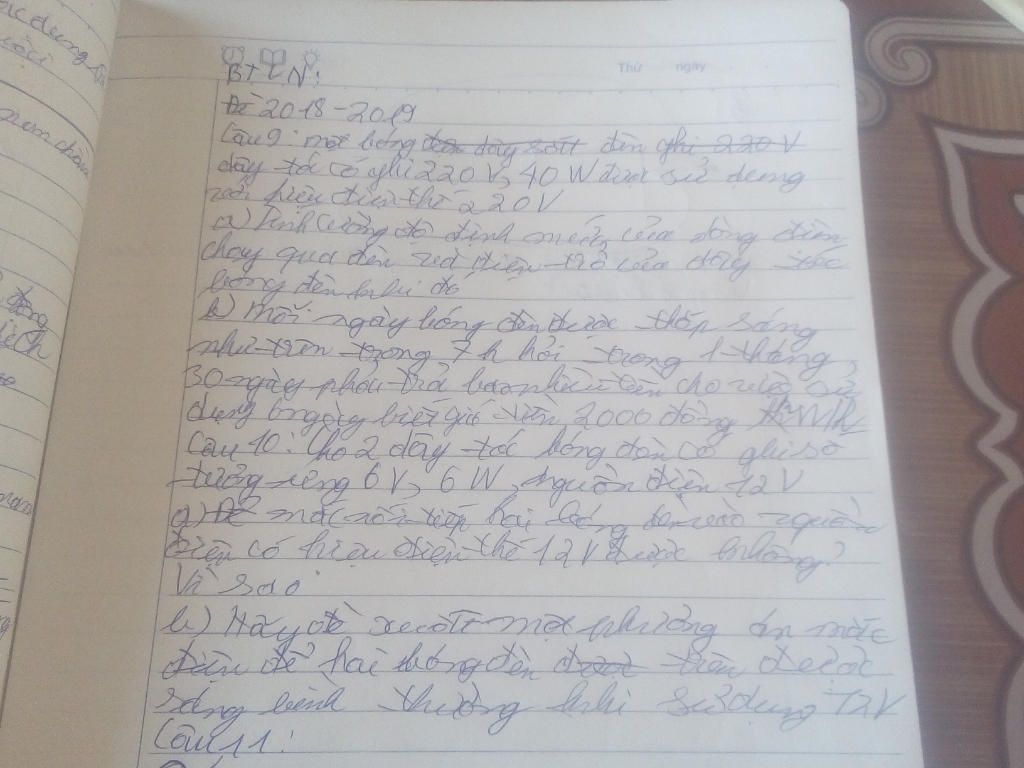 Thứ ngày
BTVN:
Đề 2018-2019
Câu 9: một bóng đèn dây sắt đèn ghi 220 V
dây tóc có ghi 220 V, 40 W được sử dụng
với hiệu điện thế 220V
a) Tính cường độ định mức của dòng điện
chạy qua đèn và điện trở của dây tóc
bóng đèn khi đó
b) Mỗi ngày bóng đèn được thắp sáng
như trên trong 7h hỏi trong 1 tháng
30 ngày phải trả bao nhiêu tiền cho việc sử
dụng biết giá tiền 2000 đồng
Câu 10: Cho 2 dây tóc bóng đèn có ghi số
tưởng ứng 6 V, 6 W, nguồn điện 12 V
a) Để mắc nối tiếp hai bóng đèn vào nguồn
điện có hiệu điện thế 12V được không?
Vì sao
b) Hãy đề xuất một phương án mắc
điện để hai bóng đèn được trên được
sáng bình thường khi sử dụng 12V
Câu 11: